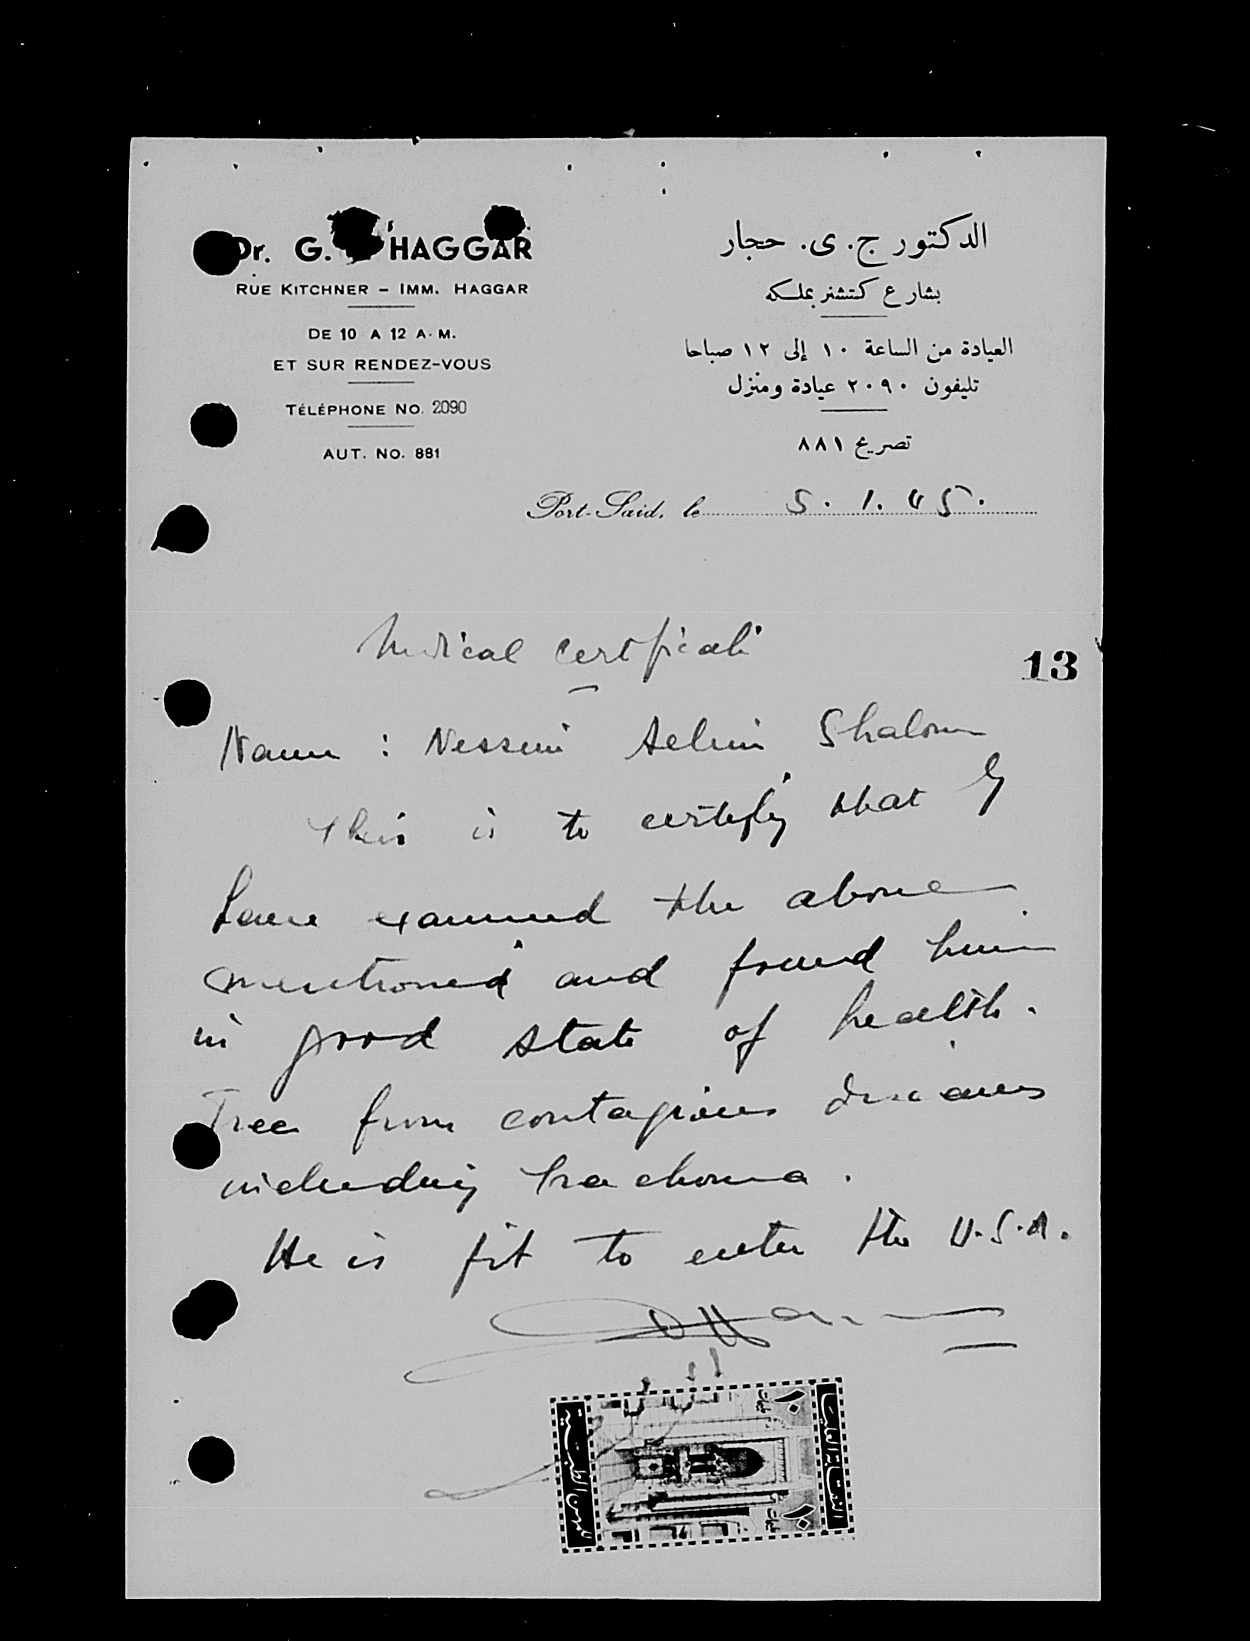 Dr. G. HAGGAR
RUE KITCHNER – IMM. HAGGAR
DE 10 A 12 A.M.
ET SUR RENDEZ-VOUS
TÉLÉPHONE NO. 2090
AUT. NO. 881
الدكتور ج. ى. حجار
بشارع كتشنر بملكه
العيادة من الساعة ١٠ إلى ١٢ صباحا
تليفون ٢٠٩٠ عيادة ومنزل
تصريح ٨٨١
Port-Said, le 5. 1. 45.
Medical certificate
13
Name : Nessim Selim Shalom
This is to certify that I
have examined the above
mentioned and found him
in good state of health.
Free from contagious diseases
including trachoma.
He is fit to enter the U.S.A.
١٠
١٠